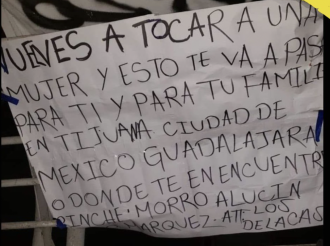 VUELVES A TOCAR A UNA
MUJER Y ESTO TE VA A PAS
PARA TI Y PARA TU FAMILI
EN TIJUANA CIUDAD DE
MEXICO GUADALAJARA
O DONDE TE EN ENCUENTR
PINCHE. MORRO ALUCIN
MARQUEZ. ATT LOS
DELACAS